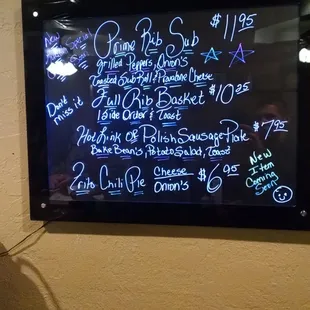 Prime Rib Sub $11.95
Grilled Peppers, Onion's
Toasted Sub Roll & Provolone Cheese
Don't
miss it
Full Rib Basket $10.25
1 Side Order & Toast
Hot Link or Polish Sausage Plate $7.95
Bake Bean's, Potato Salad, Toast
Frito Chili Pie Cheese Onion's $6.95
New
Item
Coming
Soon